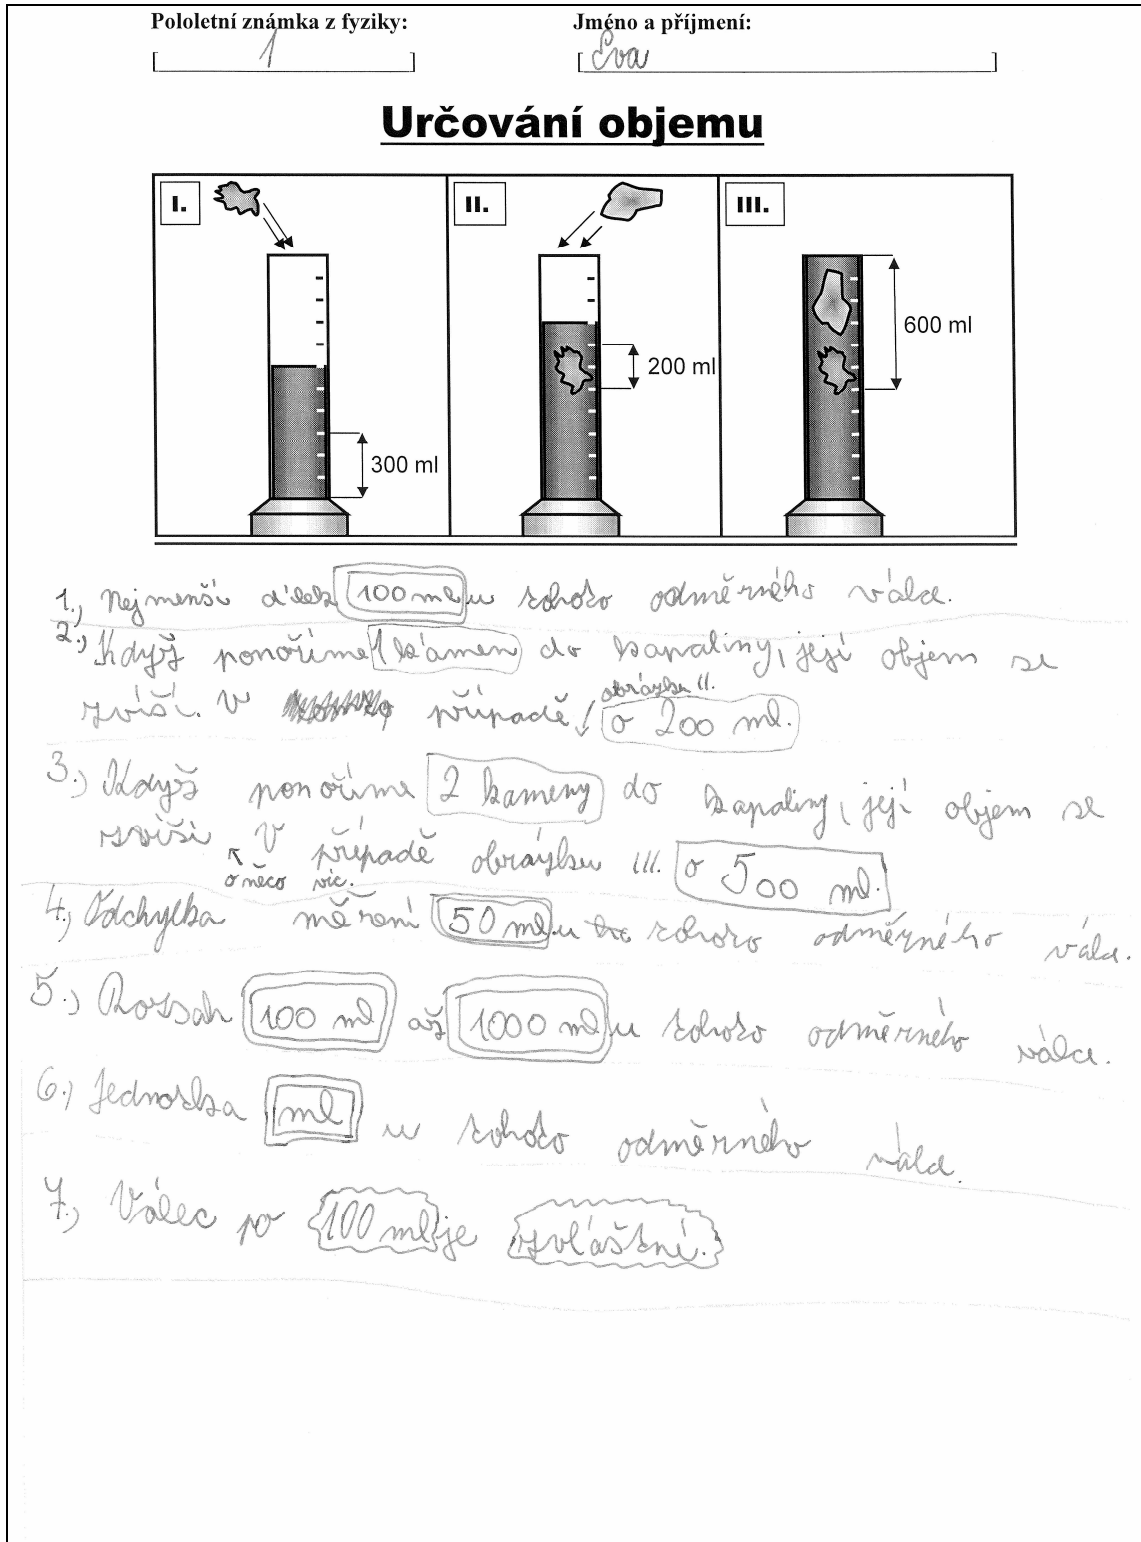 Pololetní známka z fyziky: Jméno a příjmení:
1 Eva
Určování objemu
I. II. III.
600 ml
200 ml
300 ml
1.) Nejmenší dílek 100 ml u tohoto odměrného válce.
2.) Když ponoříme 1 kámen do kapaliny, její objem se
obrázku II.
zvíší. V případě o 200 ml.
3.) Když ponoříme 2 kameny do kapaliny, její objem se
zvíší V případě obrázku III. o 500 ml.
o něco víc.
4.) Odchylka měření 50 ml u tohoto odměrného válce.
5.) Rozsah 100 ml až 1000 ml u tohoto odměrného válce.
6.) Jednotka ml u tohoto odměrného válce.
7.) Válec po 100 ml je zvláštní.